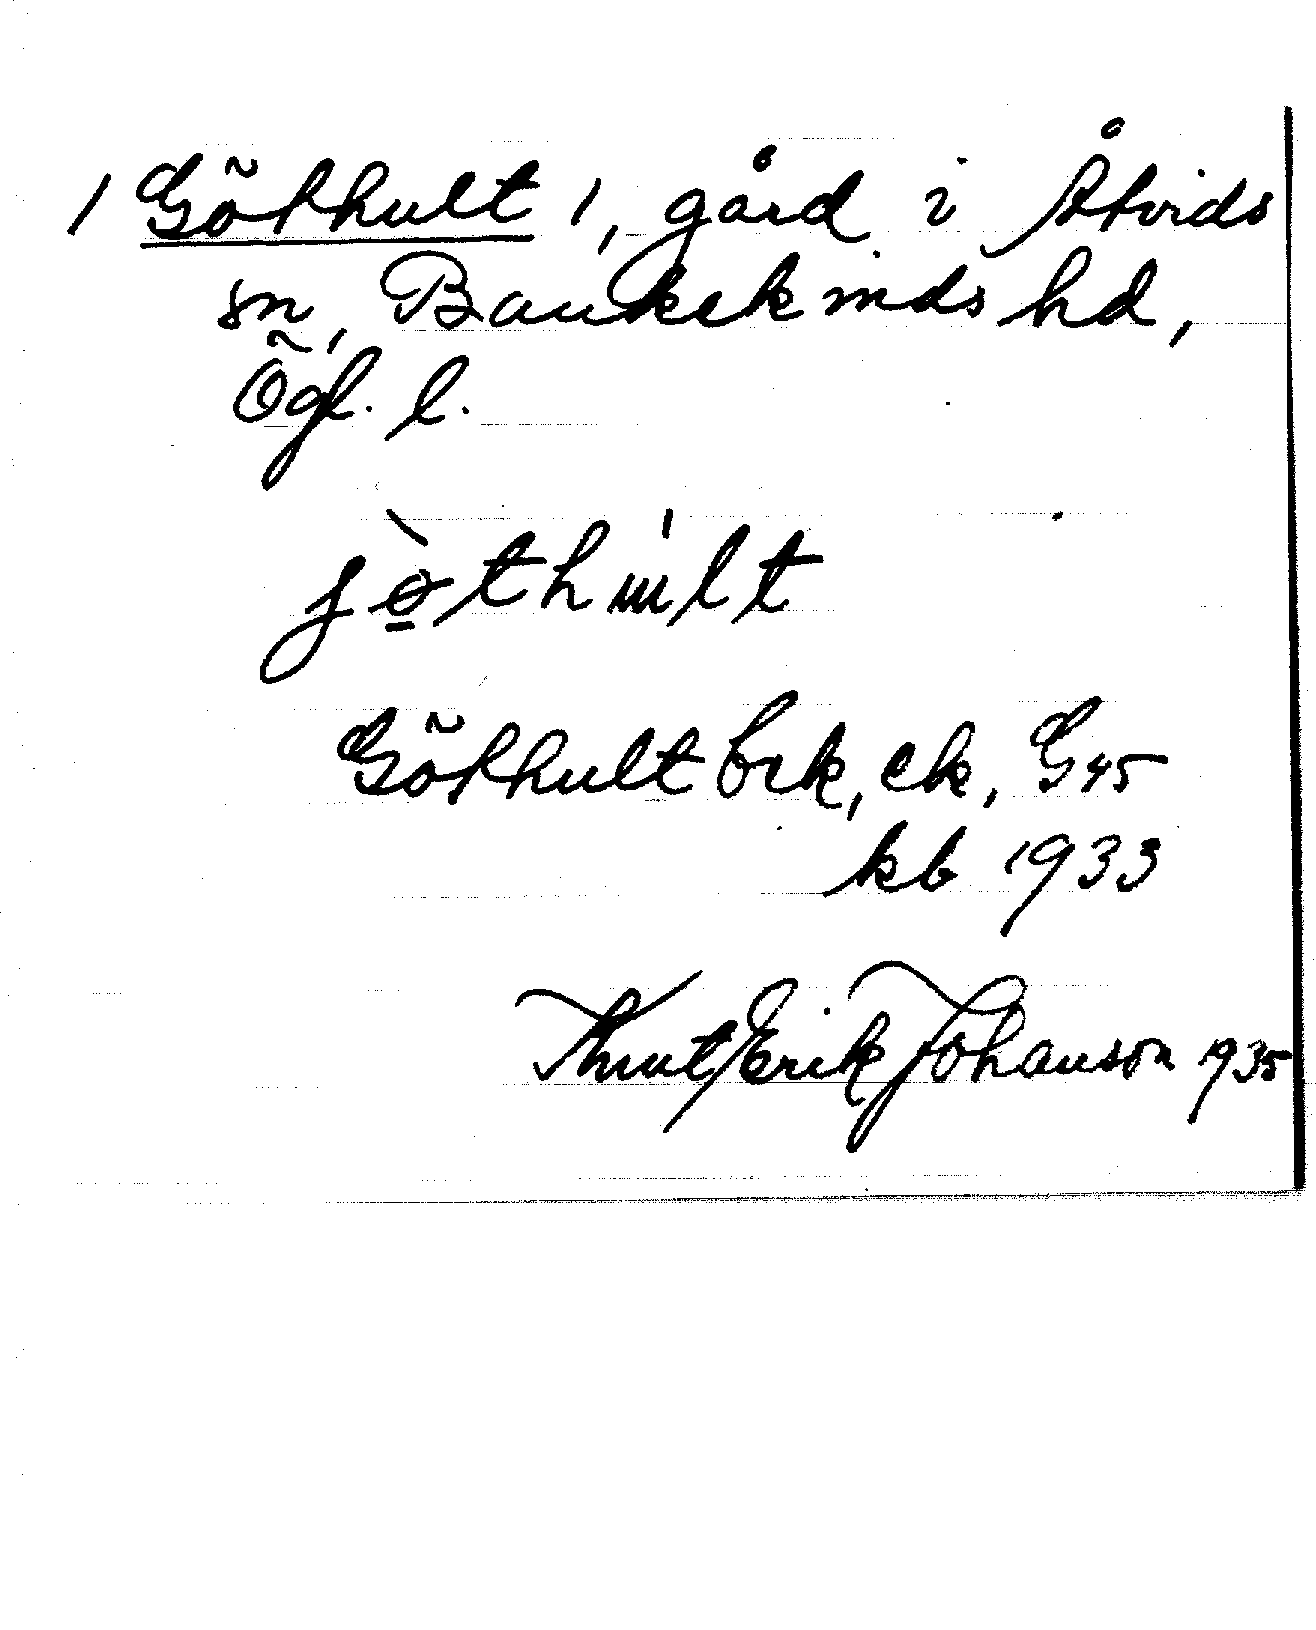 / Göthult /, gård i Åtvids
sn, Bankekinds hd,
Ögl. l.
jø̱̀thɯ́lt
Göthult brk, ek, G45
kb 1933
Knut Erik Johanson 1935